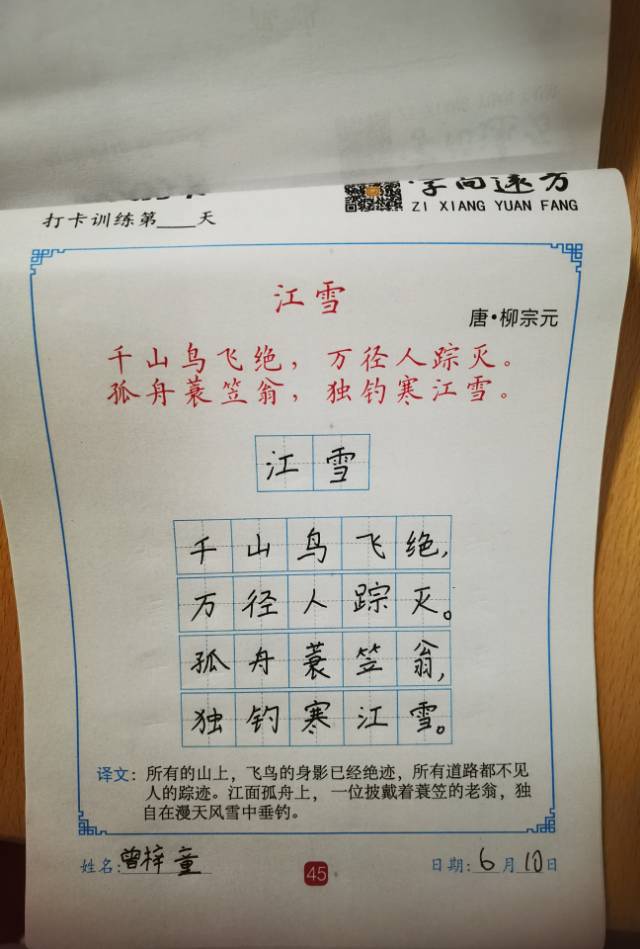 字向远方
打卡训练第___天
ZI XIANG YUAN FANG
江雪
唐·柳宗元
千山鸟飞绝，万径人踪灭。
孤舟蓑笠翁，独钓寒江雪。
江雪
千山鸟飞绝，
万径人踪灭。
孤舟蓑笠翁，
独钓寒江雪。
译文：所有的山上，飞鸟的身影已经绝迹，所有道路都不见
人的踪迹。江面孤舟上，一位披戴着蓑笠的老翁，独
自在漫天风雪中垂钓。
姓名：曾梓童
45
日期：6月10日